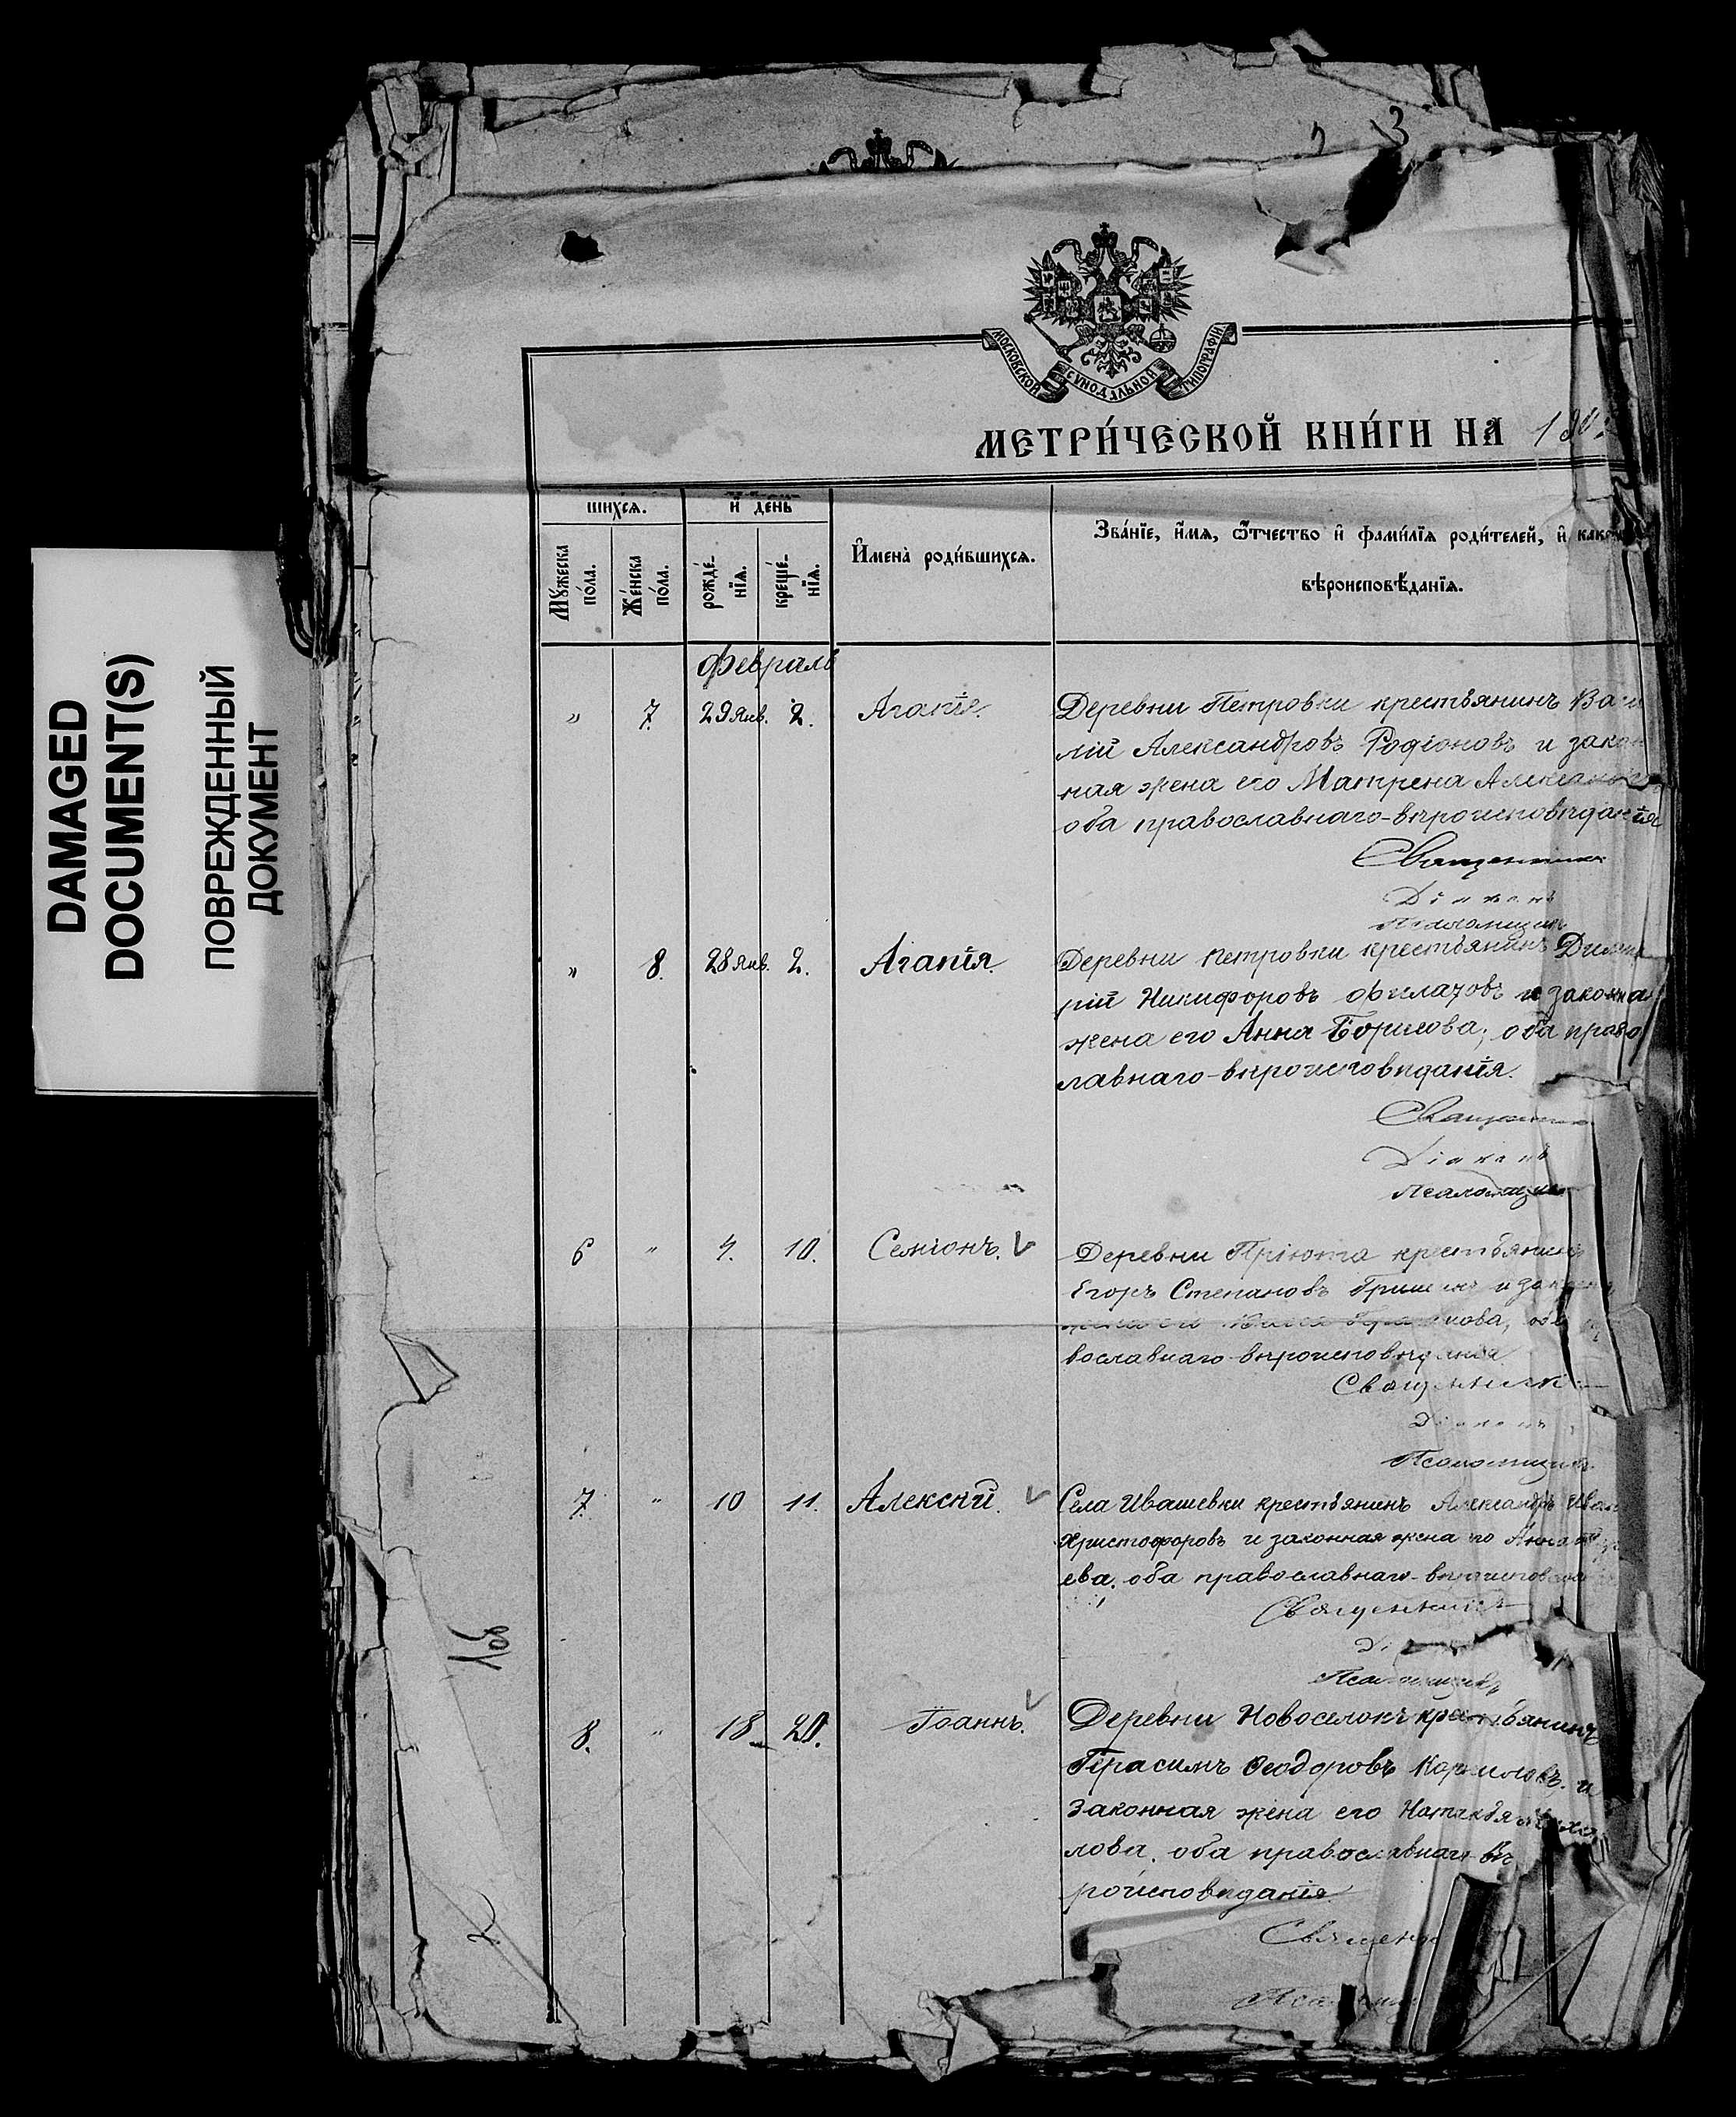 DAMAGED
DOCUMENT(S)
ПОВРЕЖДЕННЫЙ
ДОКУМЕНТ
3
МОСКОВСКОЙ СѴНОДАЛЬНОЙ ТИПОГРАФІИ
МЕТРИ́ЧЕСКОЙ КНИ́ГИ НА
шихсѧ.
и҆ день
Мꙋ́жеска по́ла.
Же́нска по́ла.
рожде́-нїѧ.
креще́-нїѧ.
И҆мена̀ роди́вшихсѧ.
Зва́нїе, и҆́мѧ, ѻ҆́тчество и҆ фами́лїѧ роди́телей, и҆
вѣроисповѣ́данїѧ.
Февраль
" 7. 29 Янв. 2. Агапія. Деревни Петровки крестьянинъ
лій Александровъ Родіоновъ и закон
ная жена его Матрена
оба православнаго-вѣроисповѣданія
Священникъ
Діаконъ
Псаломщикъ
" 8. 28 Янв. 2. Агапія. Деревни Петровки крестьянинъ Димит
рій Никифоровъ Филатовъ и законная
жена его Анна Борисова; оба право
лавнаго-вѣроисповѣданія.
Священникъ
Діаконъ
Псаломщикъ
6 " 4. 10. Семіонъ. Деревни Пріюта крестьянинъ
Егоръ Степановъ Гришинъ и закон
жена его
вославнаго-вѣроисповѣданія
Священникъ
Діаконъ
Псаломщикъ
7. " 10 11. Алексій. Села Ивашевки крестьянинъ Александръ Иван
Христофоровъ и законная жена его Анна
ева, оба православнаго-вѣроисповѣданія
Священникъ
Псаломщикъ
8. " 18 20. Іоаннъ. Деревни Новоселокъ крестьянинъ
Герасимъ Ѳеодоровъ и
законная жена его
лова, оба православнаго-вѣ
роисповѣданія.
Священ
2